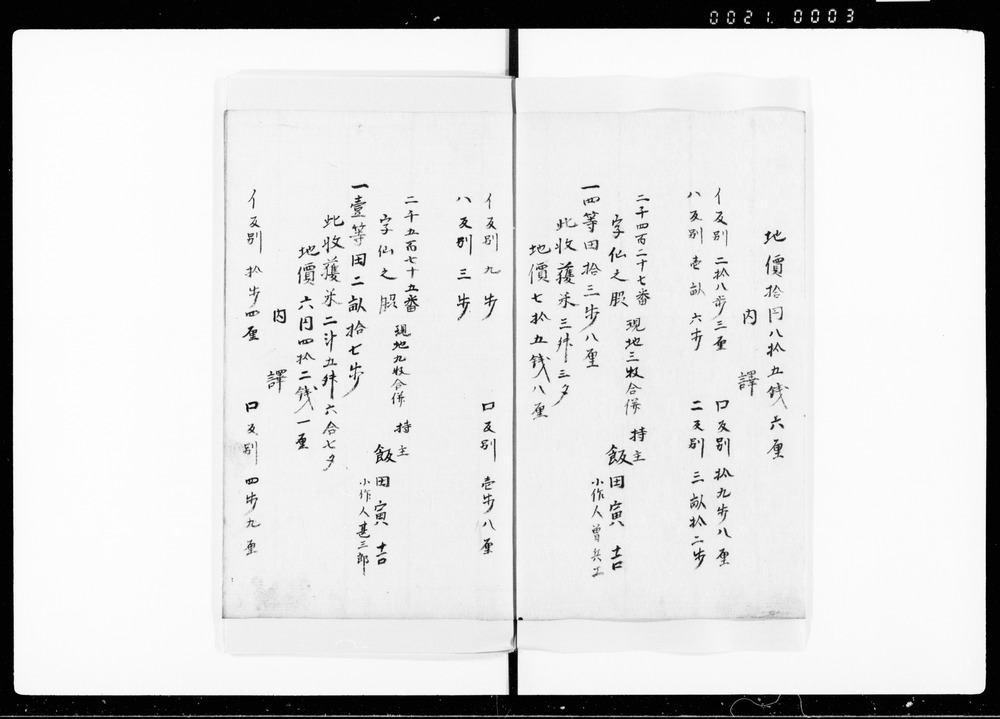 0021.0003
地價拾円八拾五錢六厘
内譯
イ反別 二拾八歩三厘 口反別 拾九歩八厘
ハ反別 壱畝六歩 二反別 三畝拾二歩
二千四百二十七番
字仙之 現地三枚合併 持主 飯田寅吉
一四等田拾三歩八厘 小作人
此收獲米三升三夕
地價七拾五錢八厘
イ反別 九歩 口反別 壱歩八厘
ハ反別 三歩
二千五百七十五番
字仙之 現地九枚合併 持主 飯田寅吉
一壹等田二畝拾七歩 小作人甚三郎
此收獲米二斗五升六合七夕
地價六円四拾二錢一厘
内譯
イ反別 拾歩四厘 口反別 四歩九厘